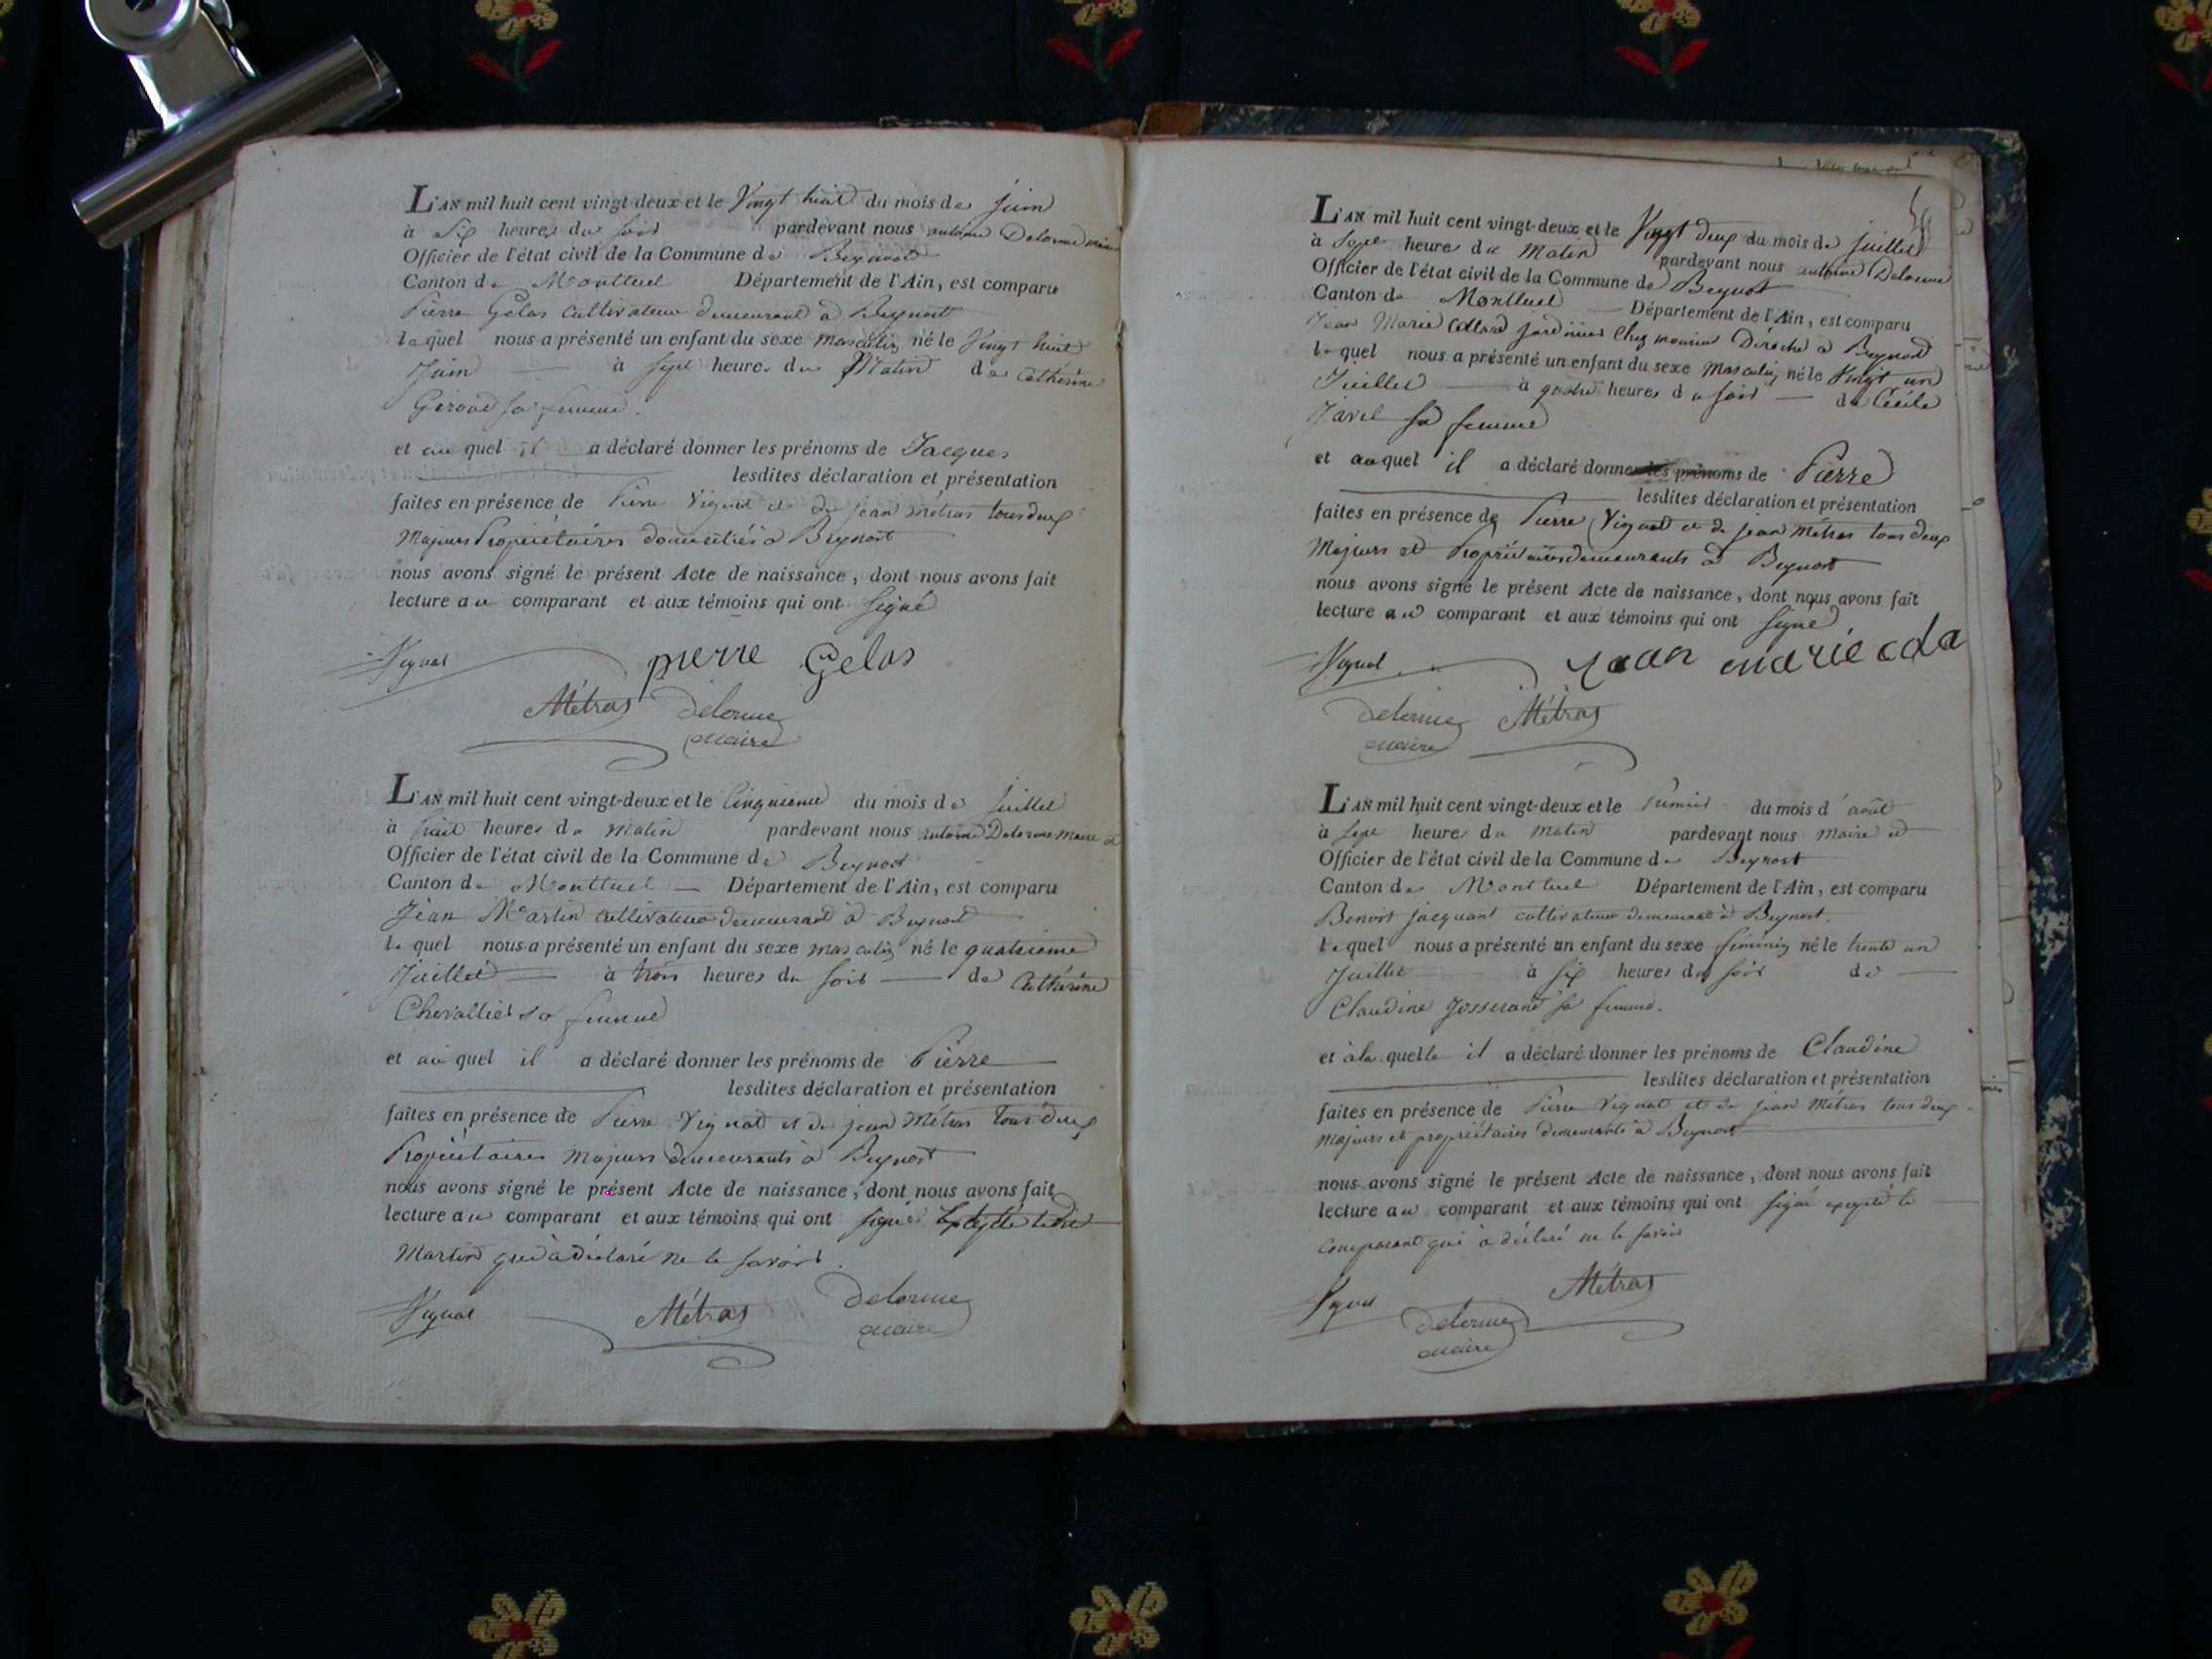 L'AN mil huit cent vingt-deux et le Vingt huit du mois de juin
à Six heures du soir pardevant nous antoine Delorme maire
Officier de l'état civil de la Commune de Beynost
Canton de Montluel Département de l'Ain, est comparu
Pierre Gelas cultivateur demeurant à Beynost
lequel nous a présenté un enfant du sexe masculin né le Vingt huit
Juin à sept heures du Matin de Cathérine
Giroud sa femme.
et au quel il a déclaré donner les prénoms de Jacques
lesdites déclaration et présentation
faites en présence de Pierre Vignat et de jean métras tous deux
Majeurs Propriétaires domiciliés à Beynost
nous avons signé le présent Acte de naissance, dont nous avons fait
lecture au comparant et aux témoins qui ont signé
Vignat pierre Gelas
Métras Delorme
maire
L'AN mil huit cent vingt-deux et le Cinquieme du mois de juillet
à huit heures du matin pardevant nous antoine Delorme maire et
Officier de l'état civil de la Commune de Beynost
Canton de Montluel Département de l'Ain, est comparu
Jean Martin cultivateur demeurant à Beynost
le quel nous a présenté un enfant du sexe masculin né le quatrieme
Juillet à trois heures du soir de Cathérine
Chevallier sa femme
et au quel il a déclaré donner les prénoms de Pierre
lesdites déclaration et présentation
faites en présence de Pierre Vignat et de jean Métras tous deux
Propriétaires majeurs demeurants à Beynost
nous avons signé le présent Acte de naissance, dont nous avons fait
lecture au comparant et aux témoins qui ont signé Excepté ledit
Martin qui à déclaré ne le savoir.
Vignat Métras Delorme
maire
L'AN mil huit cent vingt-deux et le Vingt deux du mois de juillet
à Sept heures du Matin pardevant nous antoine Delorme
Officier de l'état civil de la Commune de Beynost
Canton de Montluel Département de l'Ain, est comparu
Jean Marie Collard jardinier chez monsieur Déroche à Beynost
le quel nous a présenté un enfant du sexe Masculin né le Vingt un
Juillet à quatre heures du soir de Cécile
Javel sa femme
et auquel il a déclaré donner les prénoms de Pierre
lesdites déclaration et présentation
faites en présence de Pierre Vignat et de jean Métras tous deux
Majeurs et Propriétaires demeurants à Beynost
nous avons signé le présent Acte de naissance, dont nous avons fait
lecture au comparant et aux témoins qui ont signé
Vignat jean marie cola
Delorme Métras
maire
L'AN mil huit cent vingt-deux et le Premier du mois d'août
à Sept heures du matin pardevant nous maire et
Officier de l'état civil de la Commune de Beynost
Canton de Montluel Département de l'Ain, est comparu
Benoit jacquant cultivateur demeurant à Beynost.
le quel nous a présenté un enfant du sexe féminin né le trente un
Juillet à six heures du soir de
Claudine Josserand sa femme.
et à la quelle il a déclaré donner les prénoms de Claudine
lesdites déclaration et présentation
faites en présence de Pierre Vignat et de jean Métras tous deux
majeurs et propriétaires demeurants à Beynost
nous avons signé le présent Acte de naissance, dont nous avons fait
lecture au comparant et aux témoins qui ont signé excepté le
comparant qui a déclaré ne le savoir
Vignat Métras
Delorme
maire